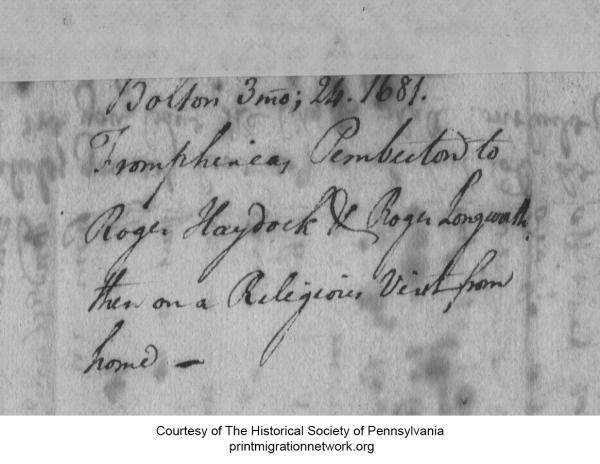 Bolton 3mo; 24. 1681.
From phineas Pemberton to
Roger Haydock & Roger Longworth
then on a Religious Visit from
home —
Courtesy of The Historical Society of Pennsylvania
printmigrationnetwork.org